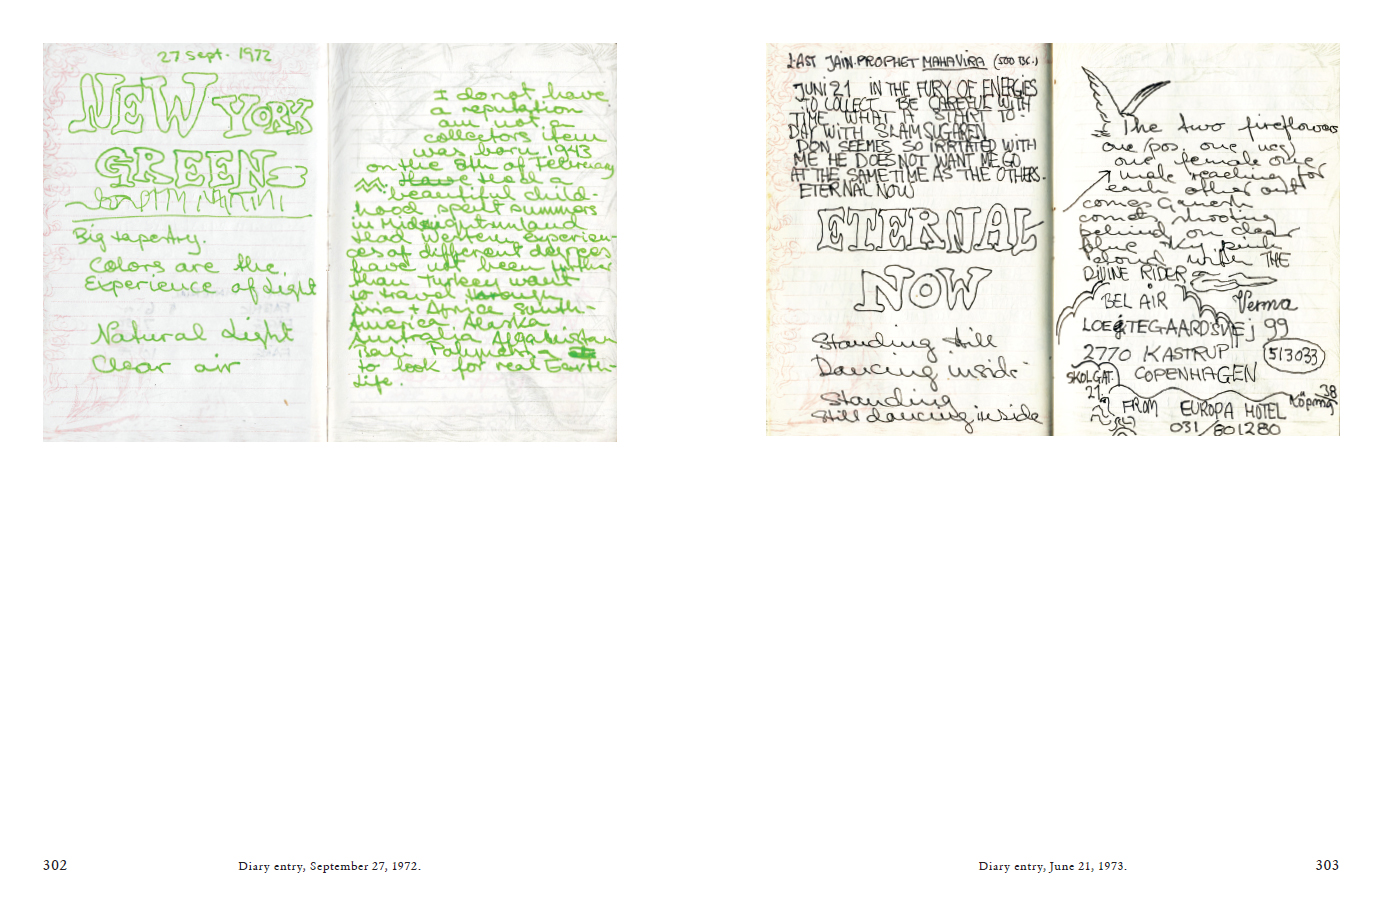 27 sept. 1972
NEW YORK
GREEN
Big tapestry.
Colors are the
Experience of Light
Natural Light
Clear air
I do not have
a reputation
am not a
collectors item
was born 1943
on the 8th of February
had a
beautiful child-
hood spent summers
in Midnightsunland
Had Western experien-
ces of different degrees
have not been further
than Turkey want
to travel through
Asia + Africa South-
America, Alaska
Australia Afganistan
Bali
to look for real Earth-
Life.
LAST JAIN-PROPHET MAHAVIRA (500 BC.)
JUNI 21 IN THE FURY OF ENERGIES
TO COLLECT. BE CAREFUL WITH
TIME WHAT A START TO-
DAY WITH SLAMSUGAREN
DON SEEMES SO IRRITATED WITH
ME HE DOES NOT WANT ME GO
AT THE SAME TIME AS THE OTHERS.
ETERNAL NOW
ETERNAL
NOW
Standing still
Dancing inside
Standing
still dancing inside
The two fireflowers
one pos. one neg
one female one
male reaching for
each other out
comes Ganesh
comets shooting
behind on clear
blue sky pink
cloud with THE
DIVINE RIDER
BEL AIR
Verma
LOEGTEGAARDSVEj 99
2770 KASTRUP
513033
SKOLGAT.
COPENHAGEN
21.
38
Köping
FROM EUROPA HOTEL
031/801280
302
Diary entry, September 27, 1972.
Diary entry, June 21, 1973.
303